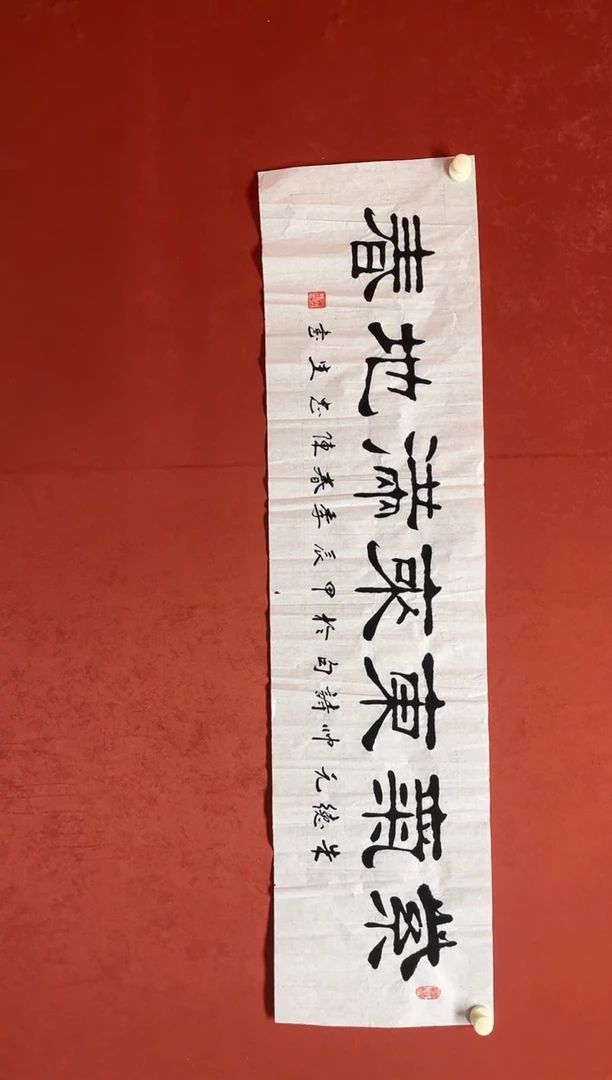 紫氣東來滿地春
朱德元帅詩句於甲辰季春陳志生書